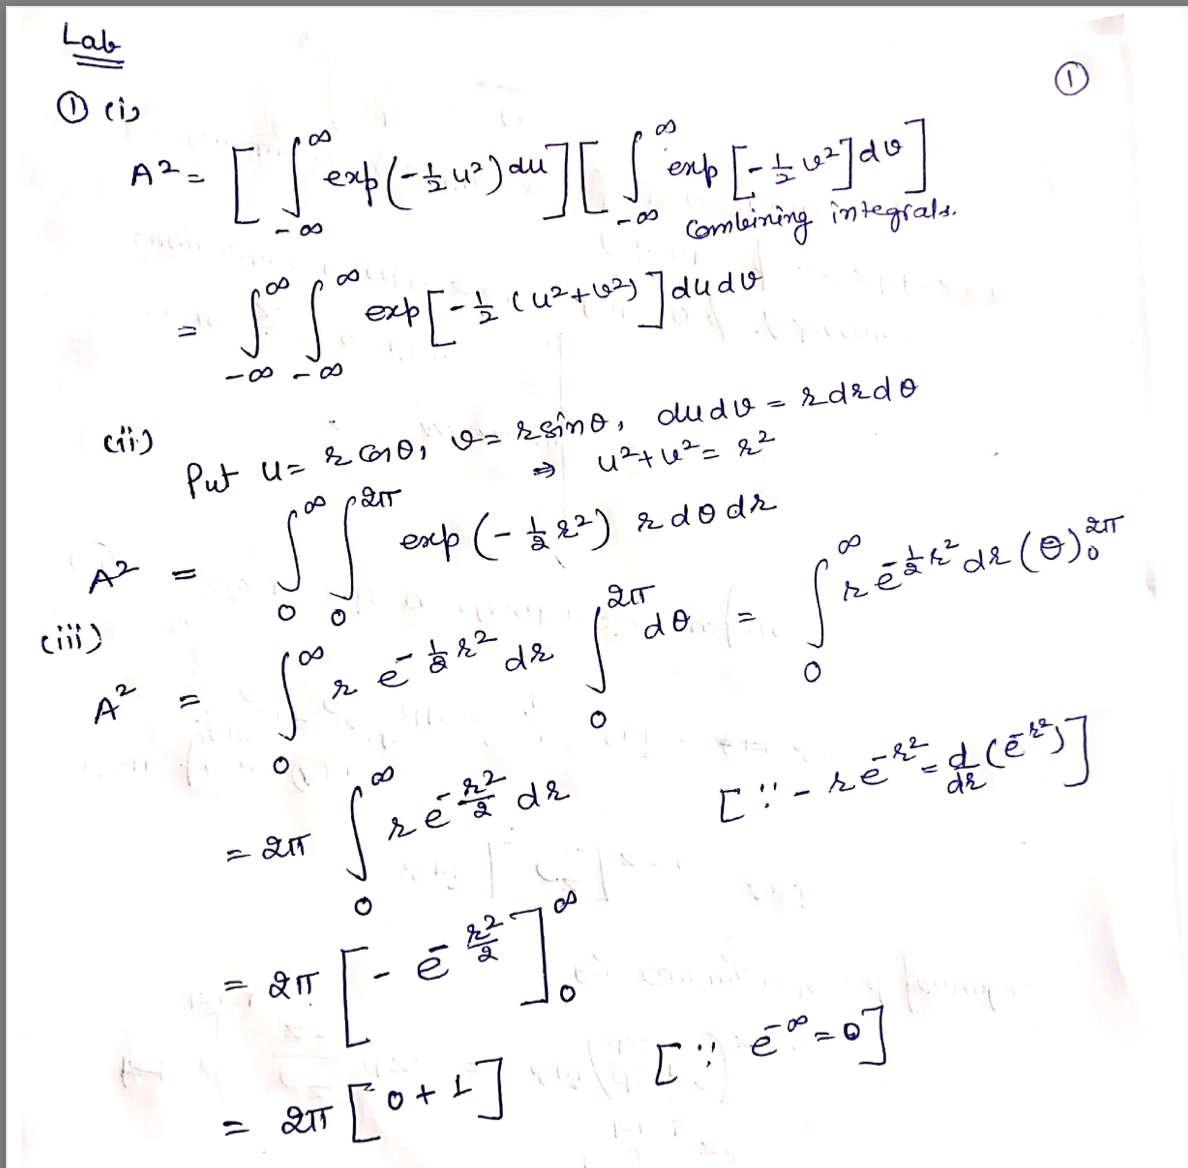 Lab
① (i)
①
A² = [ ∫_{-∞}^{∞} exp(-½ u²) du ] [ ∫_{-∞}^{∞} exp[-½ v²] dv ]
Combining integrals.
= ∫_{-∞}^{∞} ∫_{-∞}^{∞} exp[-½ (u²+v²)] du dv
(ii) Put u = r cosθ, v = r sinθ, du dv = r dr dθ
⇒ u²+v² = r²
A² = ∫_0^∞ ∫_0^{2π} exp(-½ r²) r dθ dr
(iii)
A² = ∫_0^∞ r e^{-½ r²} dr ∫_0^{2π} dθ = ∫_0^∞ r e^{-½ r²} dr (θ)_0^{2π}
= 2π ∫_0^∞ r e^{-r²/2} dr [∵ -r e^{-r²} = d/dr (e^{-r²})]
= 2π [ -e^{-r²/2} ]_0^∞
= 2π [0+1] [∵ e^{-∞} = 0]